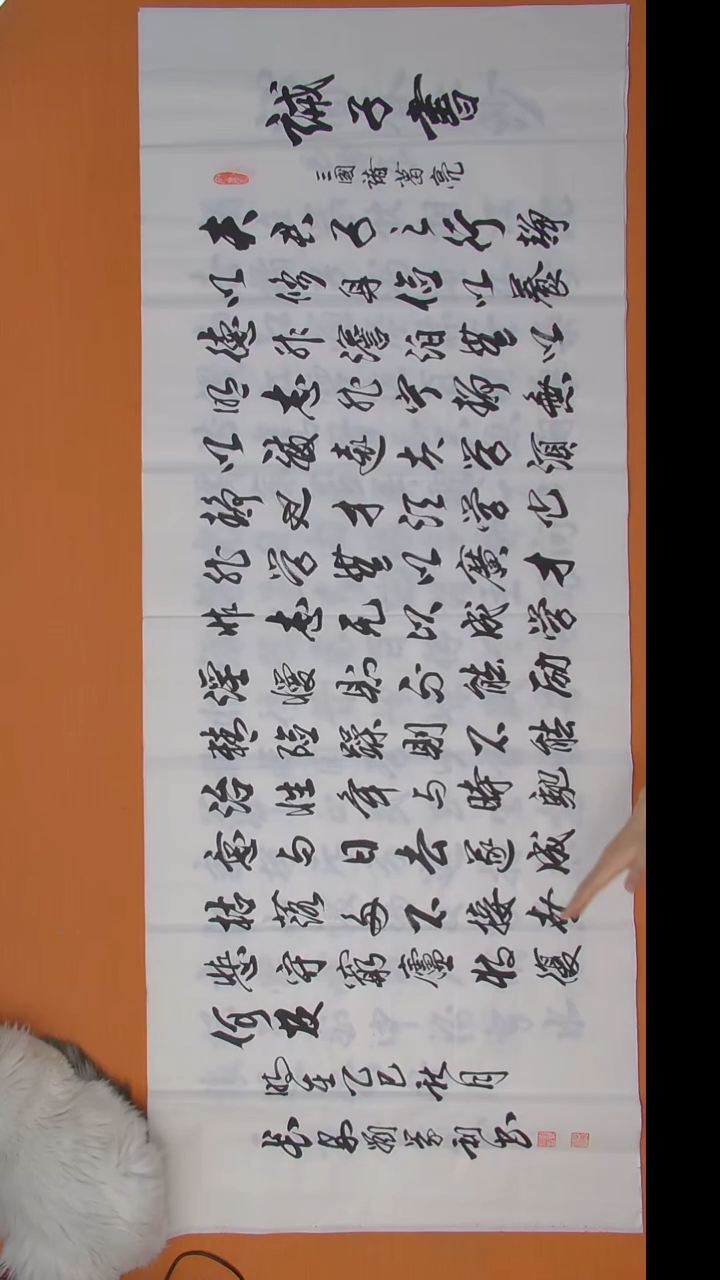 誡子書
三國 諸葛亮
夫君子之行靜
以修身儉以養
德非澹泊無以
明志非宁靜無
以致遠夫学須
靜也才須学也
非学無以廣才
非志無以成学
淫慢則不能励
精險躁則不能
治性年与時馳
意与日去遂成
枯落多不接
悲守窮廬將復
何及
歲在乙巳秋月